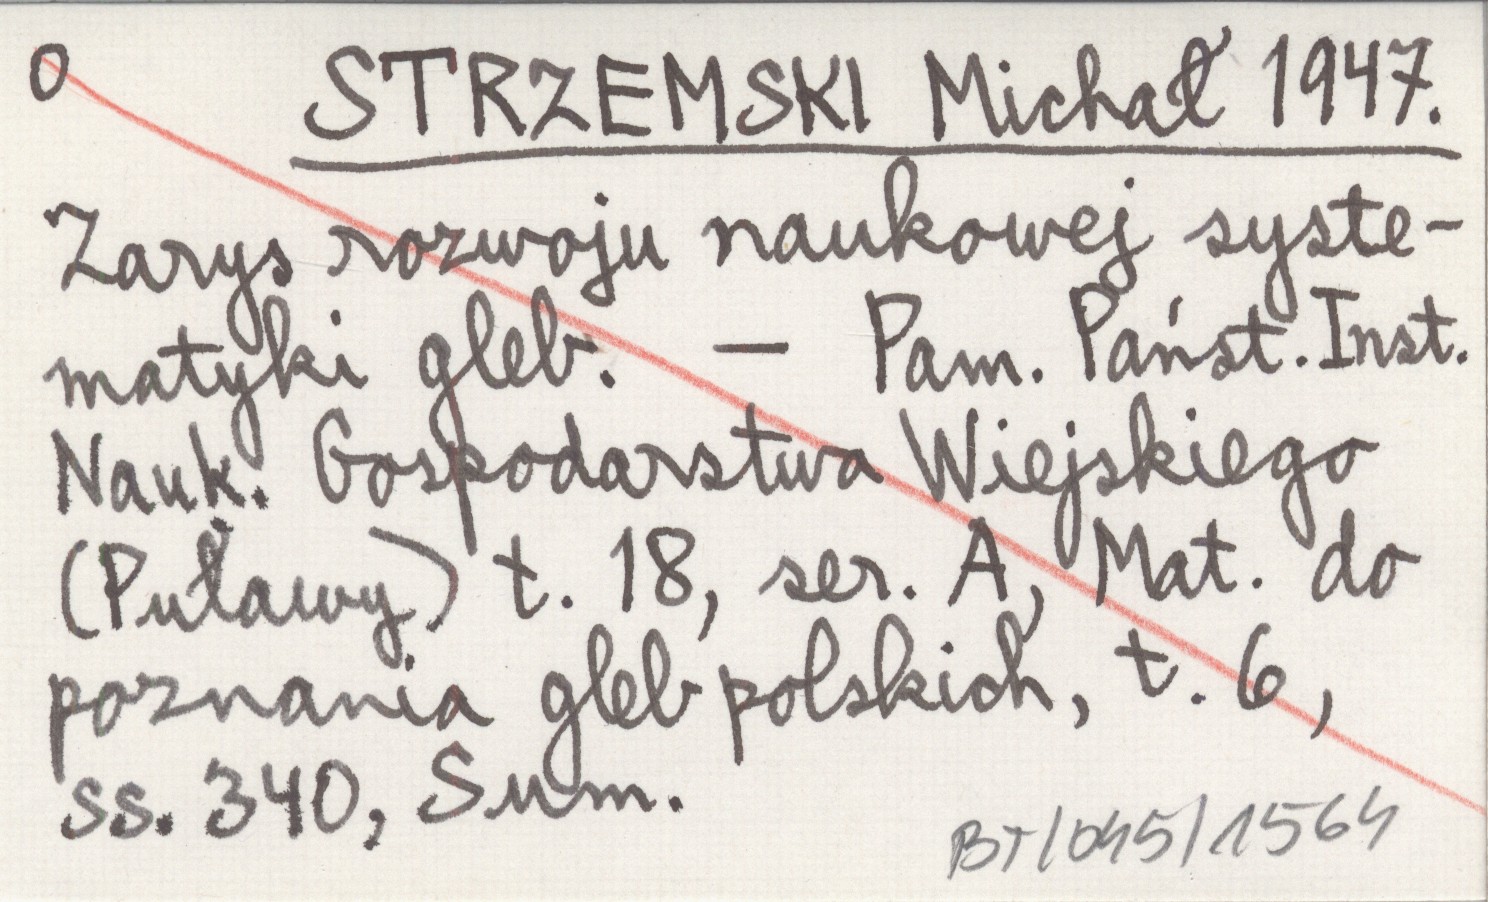 0 STRZEMSKI Michał 1947.
Zarys rozwoju naukowej syste-
matyki gleb. — Pam. Państ. Inst.
Nauk. Gospodarstwa Wiejskiego
(Puławy) t. 18, ser. A, Mat. do
poznania gleb polskich, t. 6,
ss. 340, Sum.
BT/045/1564